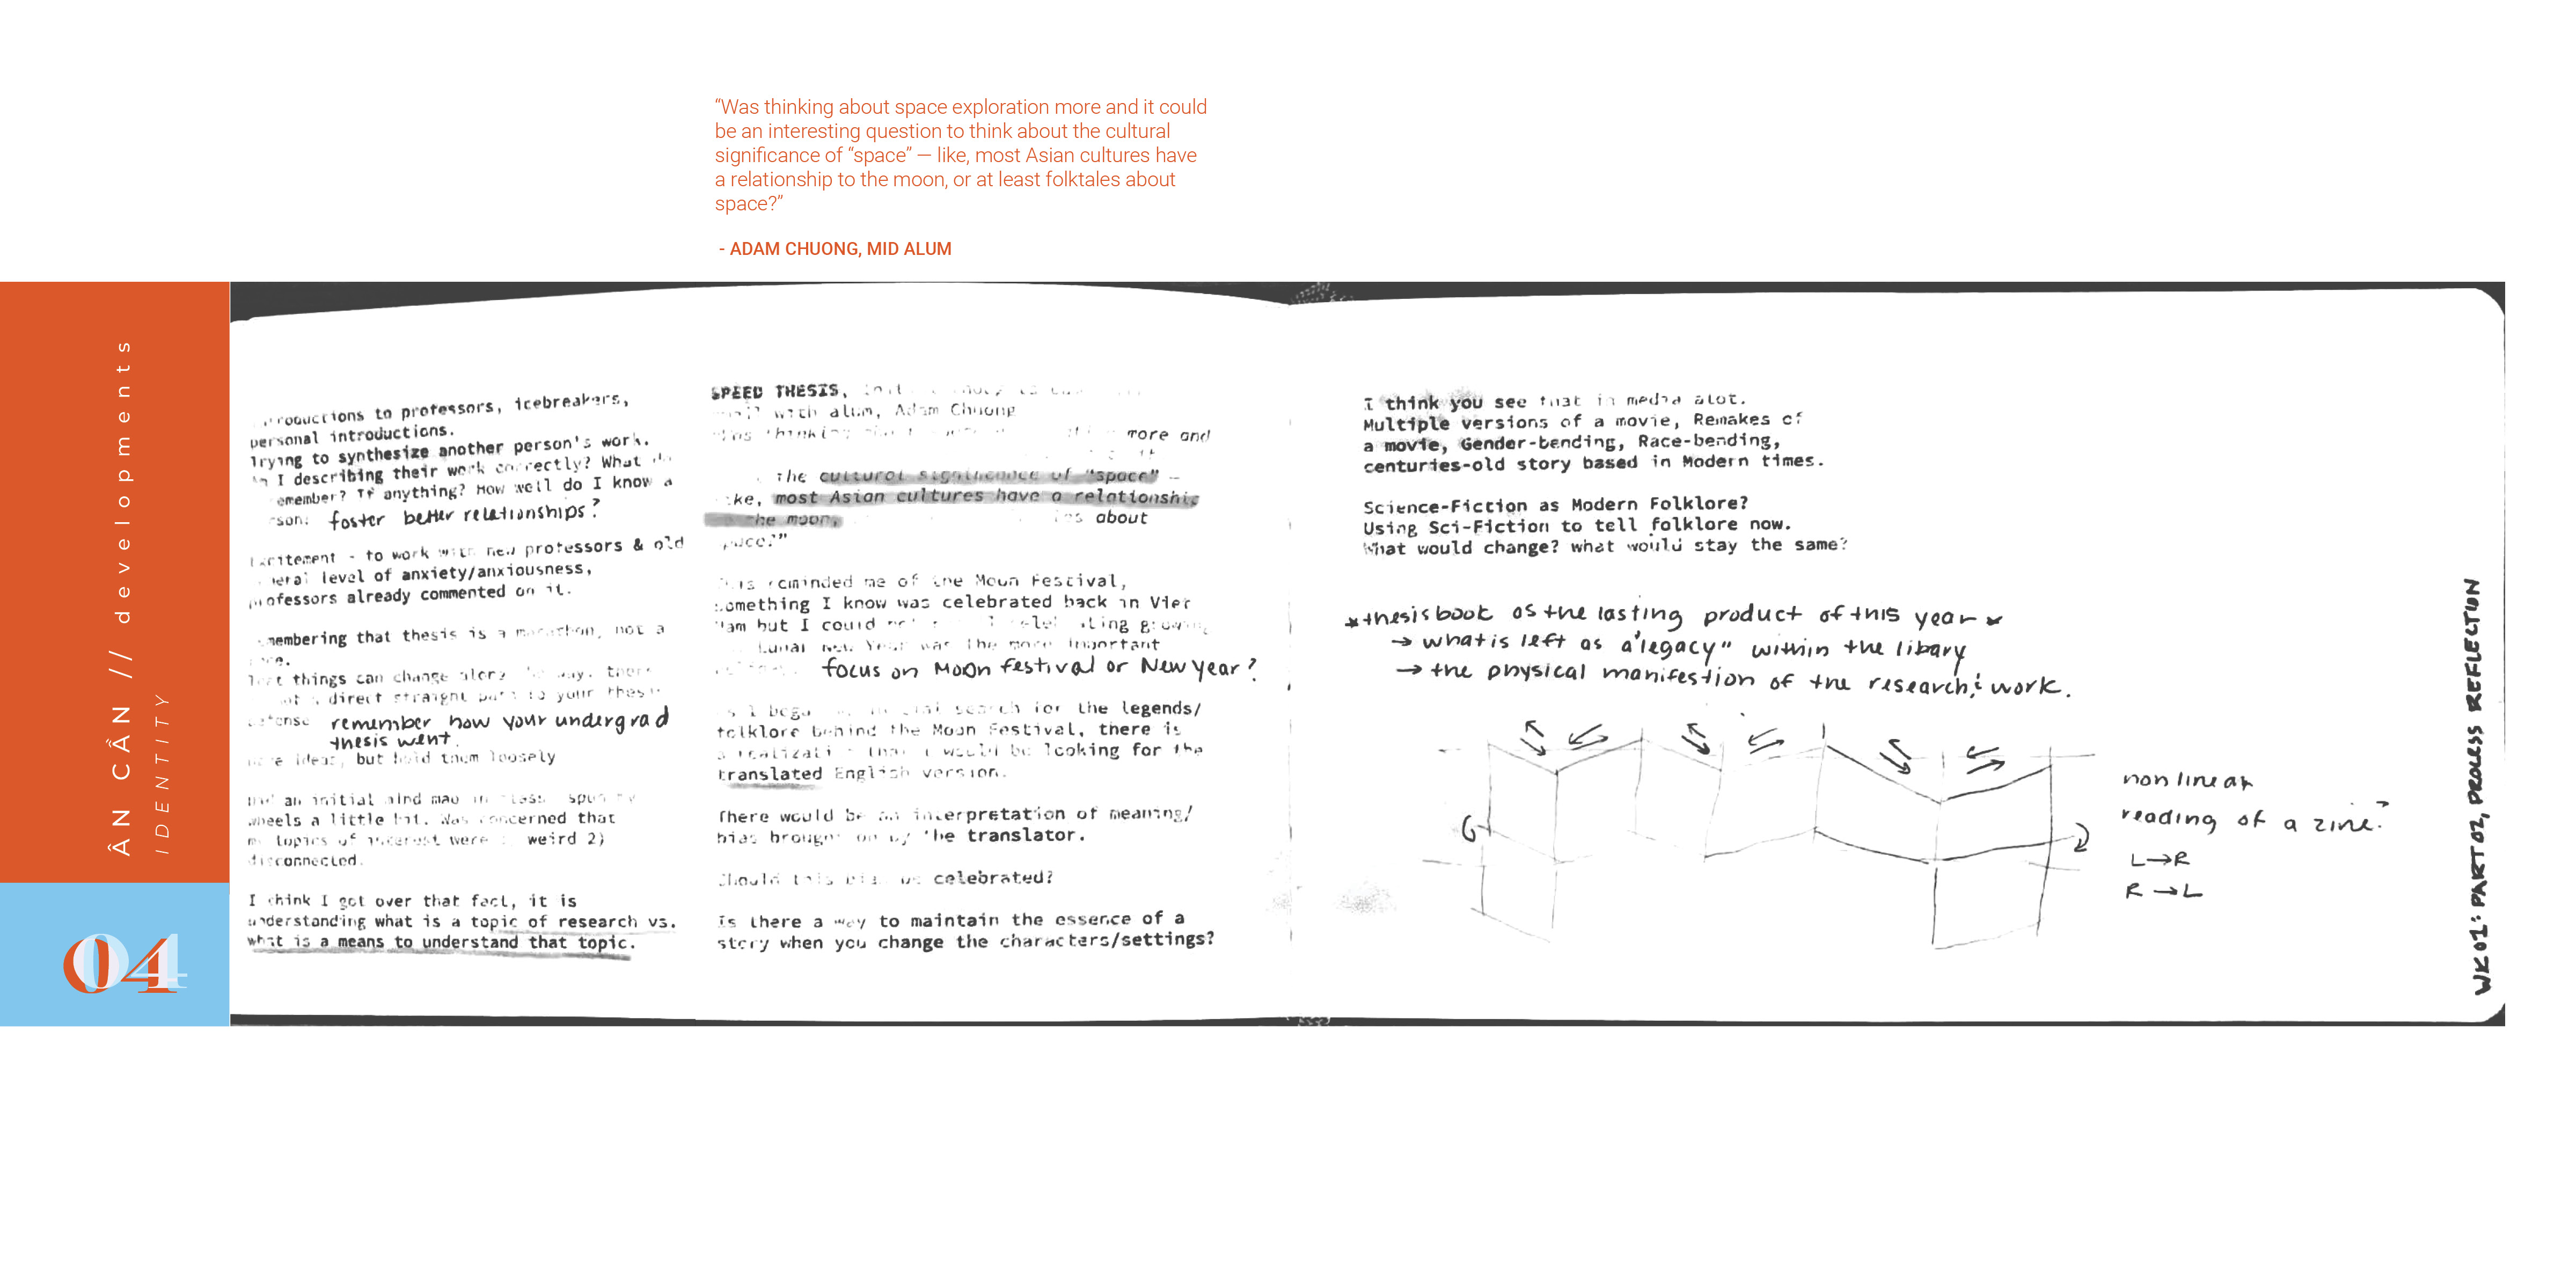 “Was thinking about space exploration more and it could
be an interesting question to think about the cultural
significance of “space” — like, most Asian cultures have
a relationship to the moon, or at least folktales about
space?”
- ADAM CHUONG, MID ALUM
ÂN CẦN // developments
IDENTITY
04
to professors, icebreakers,
personal introductions.
Trying to synthesize another person's work.
I describing their work correctly? What
If anything? How well do I know a
foster better relationships?
Excitement - to work with new professors & old
level of anxiety/anxiousness,
professors already commented on it.
that thesis is a marathon, not a
things can change along
direct straight to your
remember how your undergrad
thesis went.
ideas, but hold them loosely
an initial mind map in class
wheels a little bit. Was concerned that
topics of interest were weird 2)
disconnected.
I think I got over that fact, it is
understanding what is a topic of research vs.
what is a means to understand that topic.
SPEED THESIS,
with alum, Adam Chuong
thinking more and
the cultural significance of "space" —
most Asian cultures have a relationship
the moon, about
This reminded me of the Moon Festival,
something I know was celebrated back in Viet
Nam but I could
Lunar New Year was the more important
focus on Moon festival or New year?
search for the legends/
folklore behind the Moon Festival, there is
a realization that I would be looking for the
translated English version.
There would be an interpretation of meaning/
bias brought on by the translator.
Should this bias be celebrated?
Is there a way to maintain the essence of a
story when you change the characters/settings?
I think you see that in media alot.
Multiple versions of a movie, Remakes of
a movie, Gender-bending, Race-bending,
centuries-old story based in Modern times.
Science-Fiction as Modern Folklore?
Using Sci-Fiction to tell folklore now.
What would change? what would stay the same?
*thesis book as the lasting product of this year*
→ what is left as a "legacy" within the libary
→ the physical manifestion of the research & work.
non linear
reading of a zine?
L→R
R→L
WK 01: PART 02, PROCESS REFLECTION